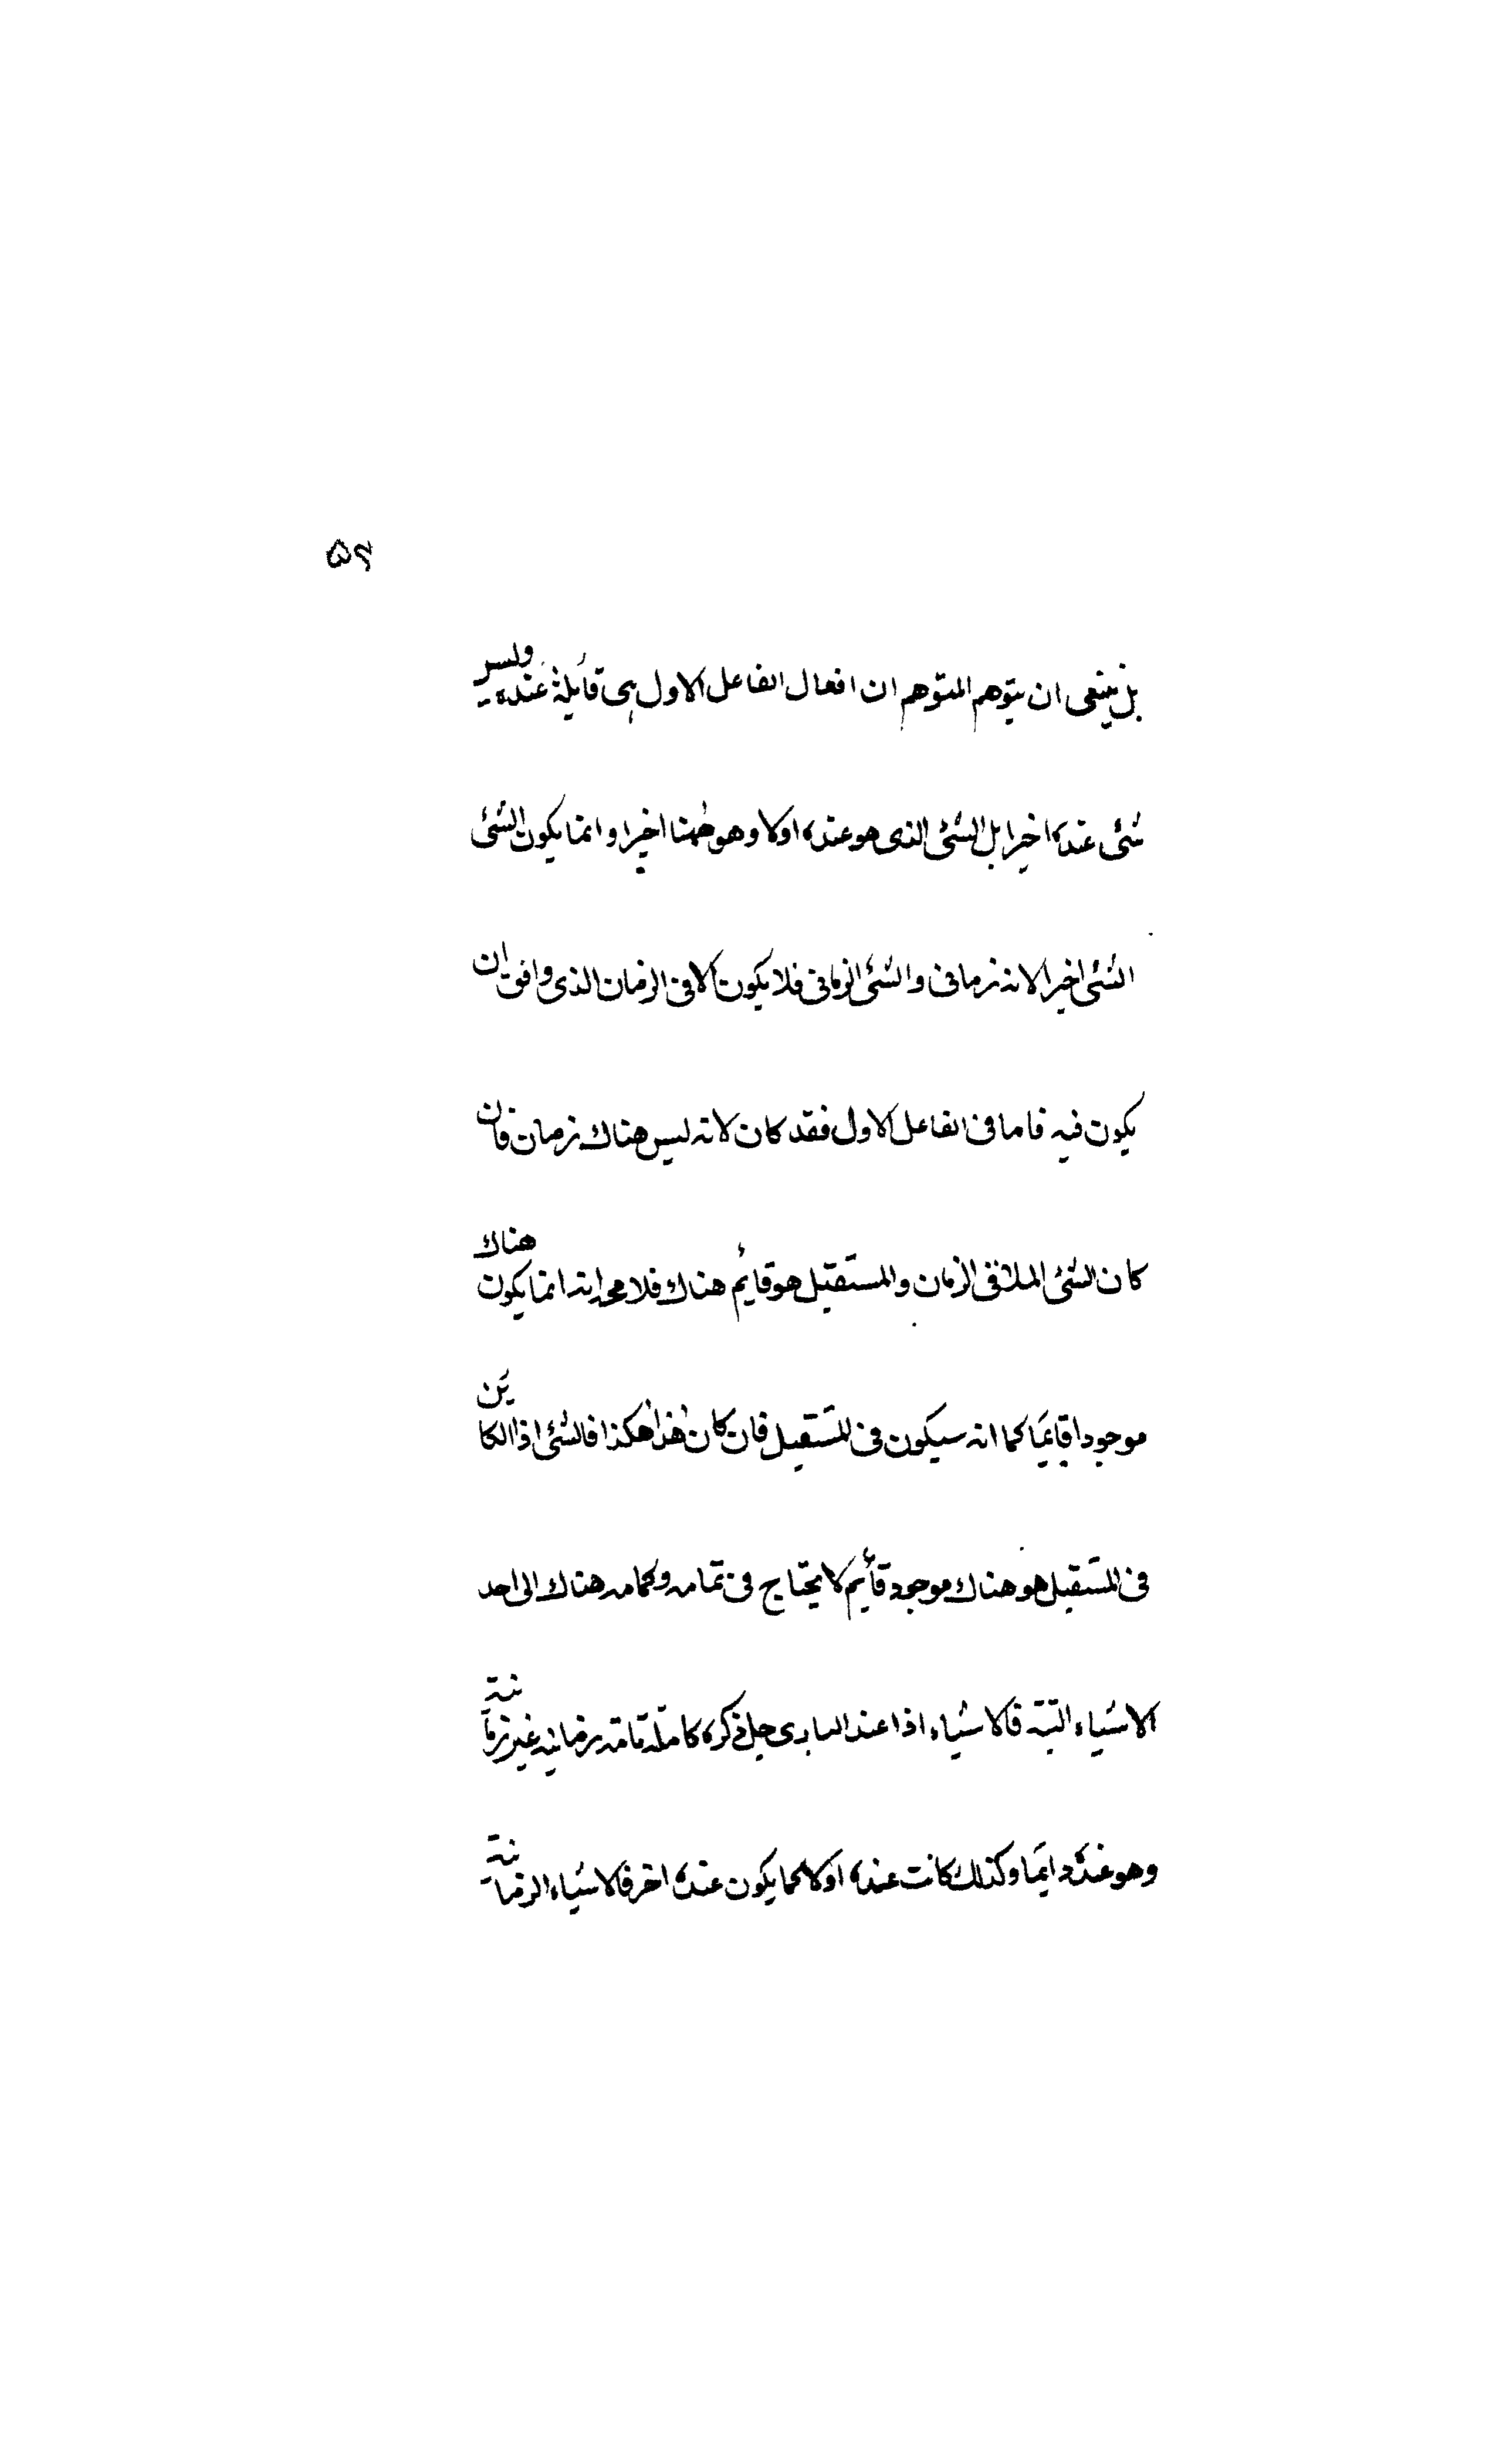 ۵۶
بل ينبغى ان يتوهم المتوهم ان افعال الفاعل الاول هى قائمة عنده وليس
شئ عنده اخيرا بل الشئ الذى هو عنده اولا وهو ههنا اخيرا وانما يكون الشئ
الشئ اخيرا لانه زمانى والشئ الزمانى فلا يكون الا فى الزمان الذى وافق ان
يكون فيه فاما فى الفاعل الاول فقد كان لانه ليس هناك زمان فان
كان الشئ الملاقى الزمان والمستقبل هو قائم هناك فلا محد انه انما يكون هناك
موجودا قايما كما انه سيكون فى المستقبل فان كان هذا هكذا فالشئ اذا الكاين
فى المستقبل هو هناك موجود قائم لا يحتاج فى تمامه وكمامه هناك الى احد
الاشياء البتة فالاشياء اذا عند البارى جل ذكره كاملة تامة زمانية غير زمانية
وهو عنده دايما وكذلك كانت عنده اولا كما يكون عنده اخر فالاشياء الزمانية